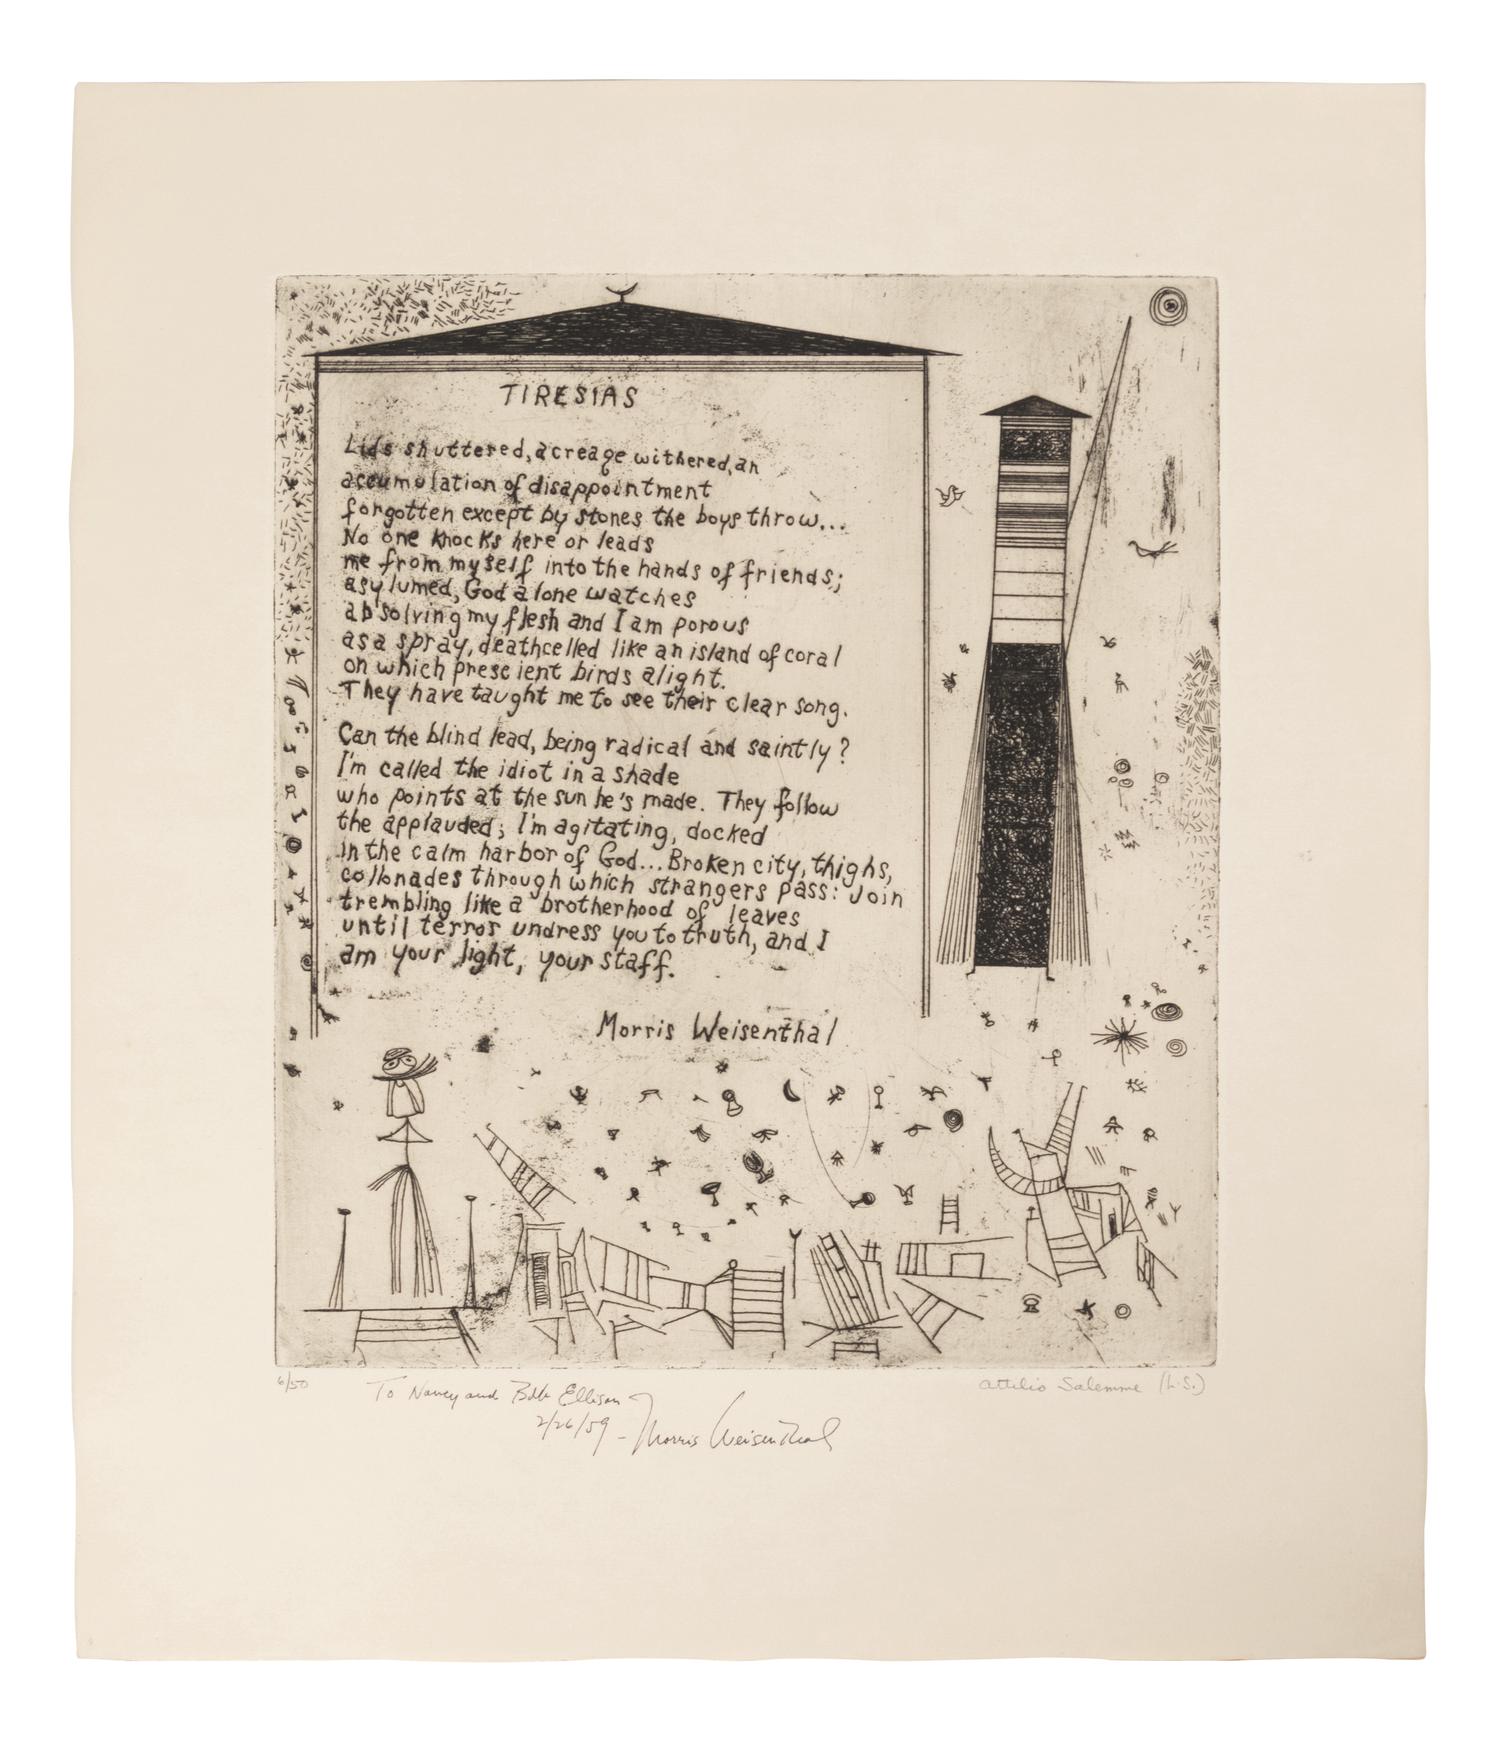 TIRESIAS
Lids shuttered, acreage withered, an
accumulation of disappointment
forgotten except by stones the boys throw...
No one knocks here or leads
me from myself into the hands of friends;
asylumed, God alone watches
absolving my flesh and I am porous
as a spray, deathcelled like an island of coral
on which prescient birds alight.
They have taught me to see their clear song.
Can the blind lead, being radical and saintly?
I'm called the idiot in a shade
who points at the sun he's made. They follow
the applauded; I'm agitating, docked
in the calm harbor of God... Broken city, thighs,
collonades through which strangers pass: Join
trembling like a brotherhood of leaves
until terror undress you to truth, and I
am your light, your staff.
Morris Weisenthal
6/50
To Nancy and Bob Ellison
Attilio Salemme (L.S.)
2/26/59 - Morris Weisenthal